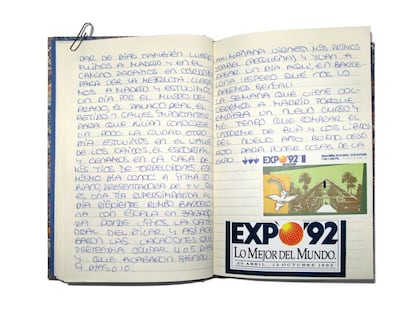 DAR DE DÍAS TAMBIÉN LUEGO
FUIMOS A MADRID Y EN EL
CAMINO PARAMOS EN CÓRDOBA
PARA VER LA MEZQUITA LUEGO
A MADRID Y ESTUVIMOS
UN DÍA POR EL MUSEO DEL
PRADO, EL PALACIO REAL EL
RETIRO Y CALLES IMPORTANTES
PARA QUE JULIÁN CONOCIESE
UN POCO LA CIUDAD OTRO
DÍA ESTUVIMOS EN EL VALLE
DE LOS CAÍDOS, EL ESCORIAL
Y CENAMOS EN LA CASA DE
MIS TÍOS DE TORRELODONES, ESE
MISMO DÍA CONOCÍ A
PRESENTADORA DE T.V, QUE
ES UN DÍA
DÍA SIGUIENTE RUMBO BARCELO
NA CON ESCALA EN ZARAGO
ZA DONDE VIMOS LA CATE
DRAL DEL PILAR Y ASÍ ACA
BARON LAS VACACIONES QUE
PRETENDÍA OCUPAR 4 O 5 DÍAS
Y QUE ACABARON SIENDO
9 DÍAS O 10.
MAÑANA VIENEN MIS PRIMOS
ISABEL (PEQUEÑA) Y JUAN A
PASAR UN DÍA AQUÍ, EN BARCE
LONA ESPERO QUE NOS LO
PASEMOS GENIAL.
LA SEMANA QUE VIENE VOL
VEREMOS A MADRID PORQUE
EMPIEZA UN NUEVO CURSO Y
ME TENGO QUE COMPRAR EL
UNIFORME DE BUP Y LOS LIBROS
DEL NUEVO AÑO. BUENO DEJO
ESTO PARA PONER COSAS DE LA
EXPO.
EXPO'92
EXPO'92
LO MEJOR DEL MUNDO.
20 ABRIL - 12 OCTUBRE 1992